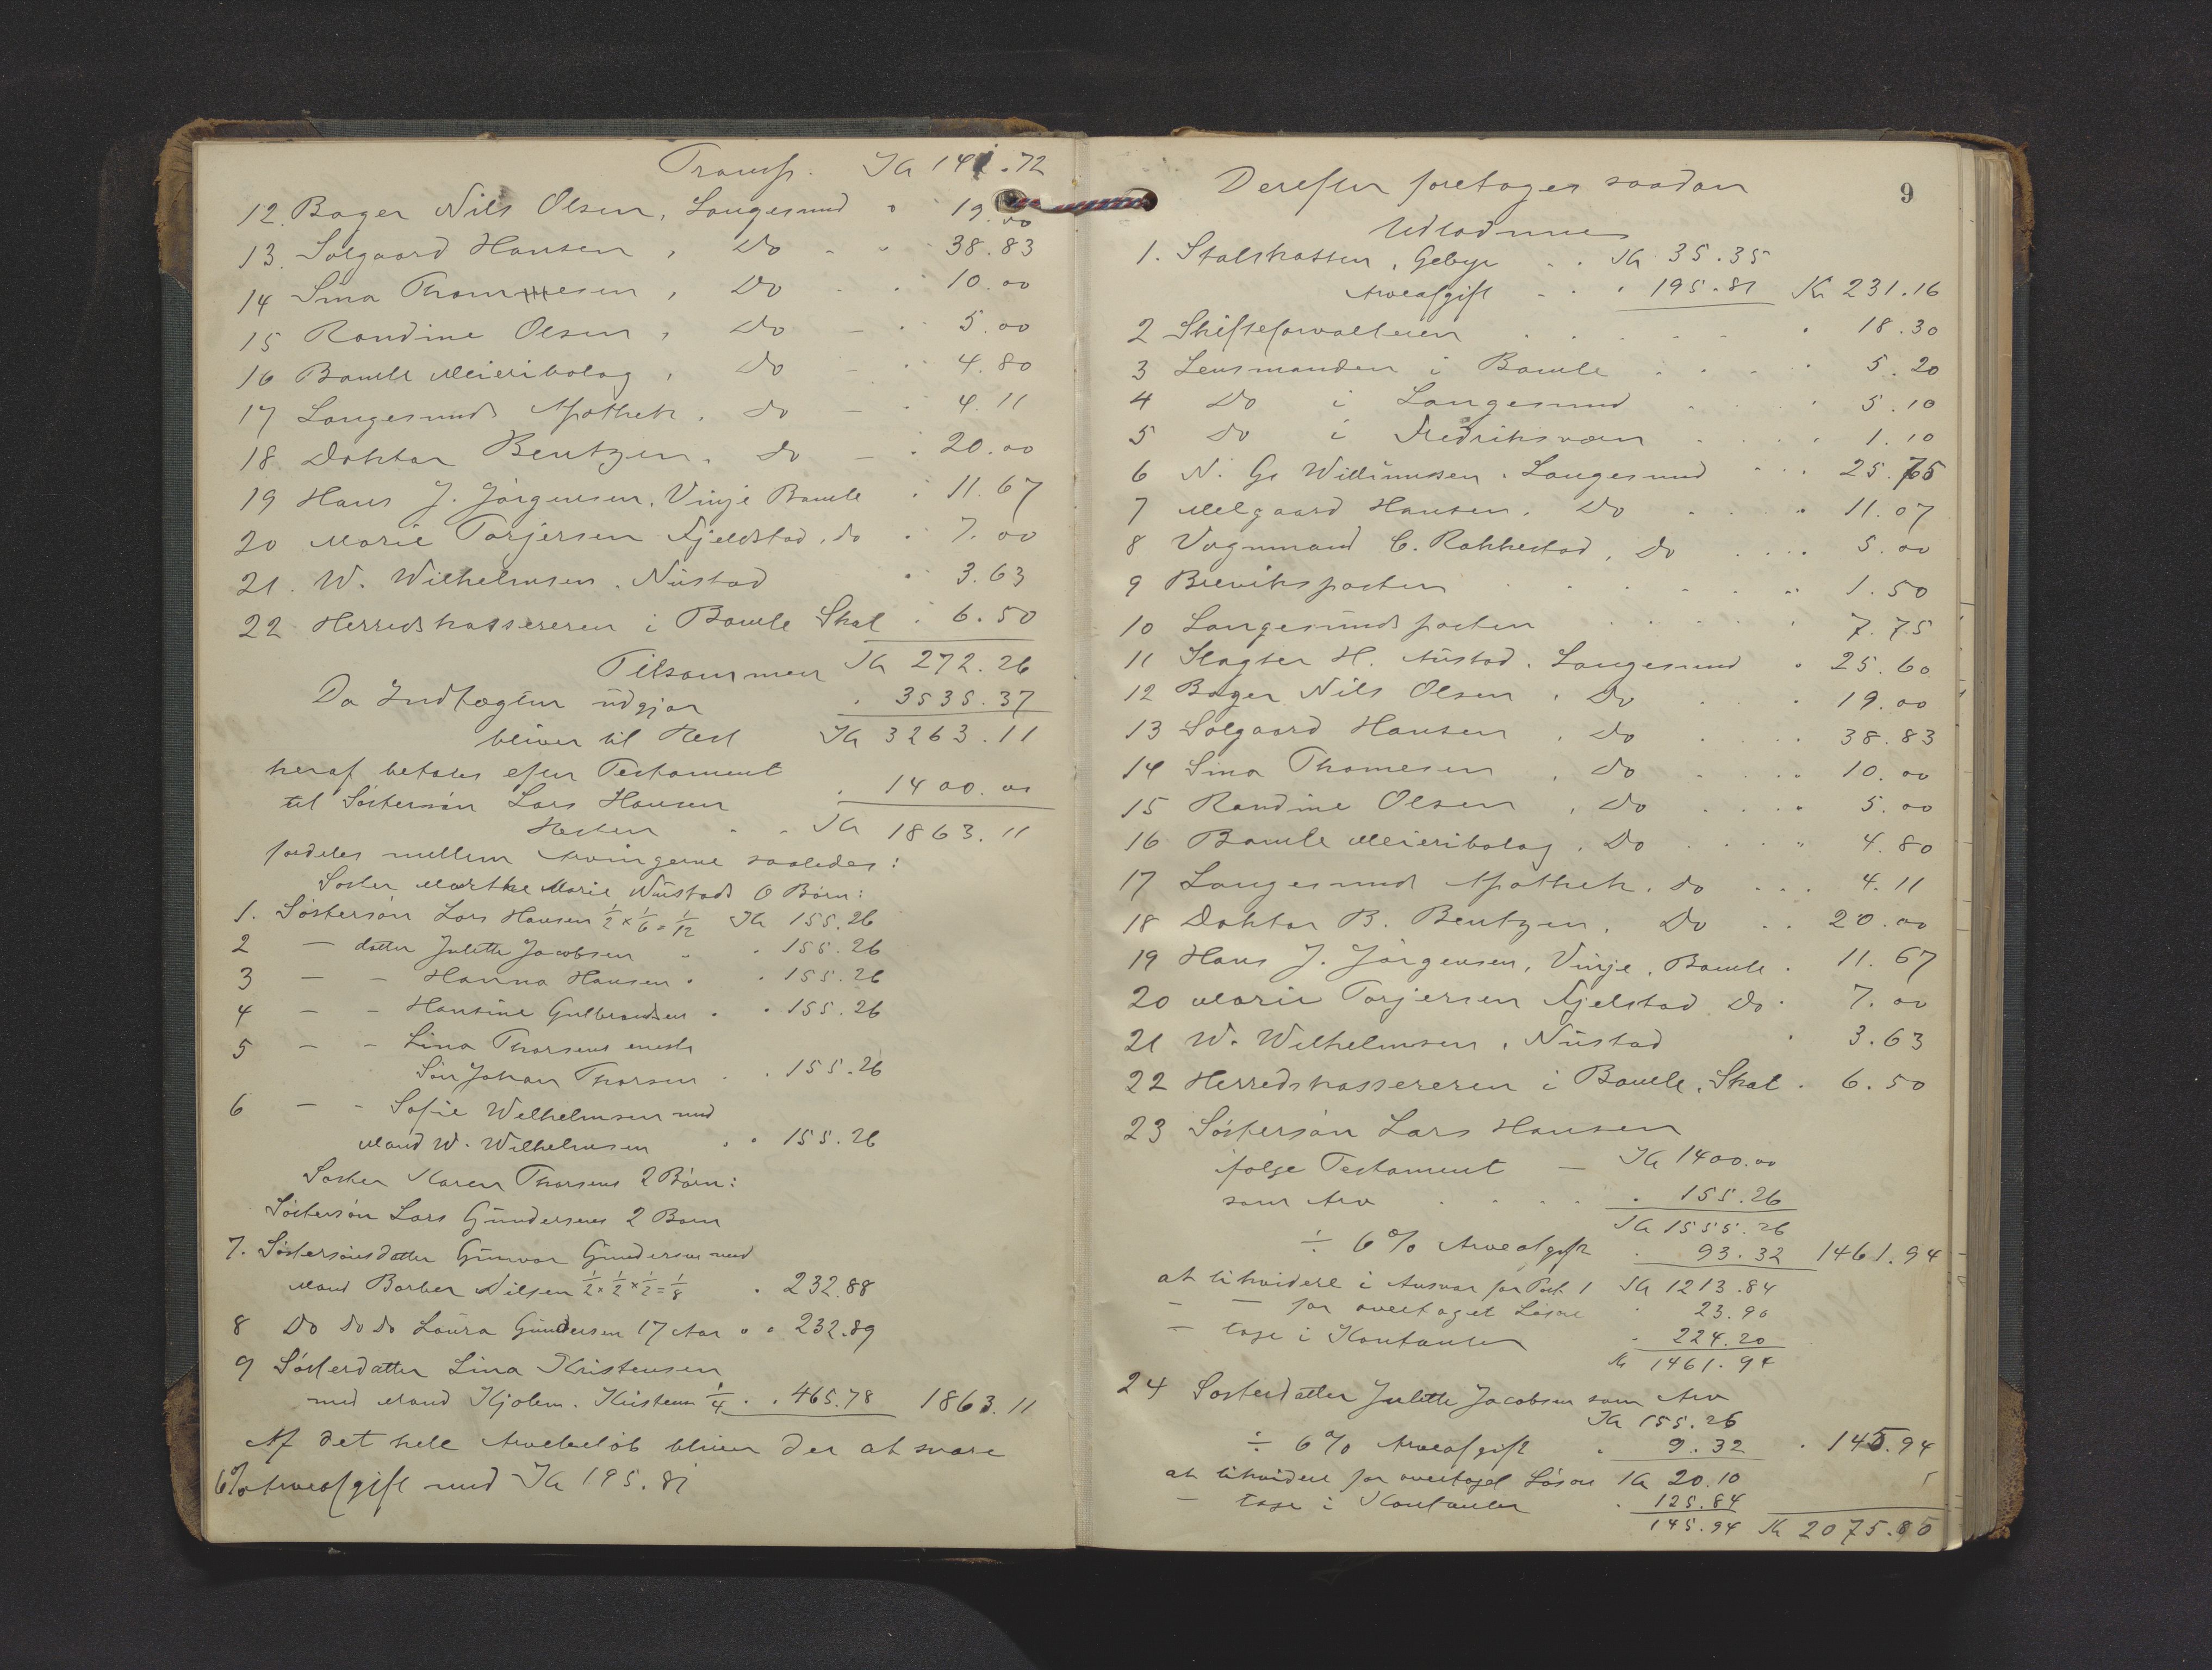 Transp. Kr 141.72
12. Bager Nils Olsen, Langesund " 19.00
13. Solgaard Hansen, Do - " 38.83
14 Sina Thommesen, Do - " 10.00
15 Randine Olsen, Do - " 5.00
16 Bamle Meieribolag, Do - " 4.80
17 Langesunds Apothek, do - " 4.11
18 Doktor Bentzen, do - " 20.00
19 Hans J. Jørgensen, Vinje Bamle " 11.67
20 Marie Torjersen Fjeldstad, do " 7.00
21. W. Wilhelmsen, Nustad " 3.63
22 Herredskassereren i Bamle Skat " 6.50
Tilsammen Kr 272.26
Da Indtægten udgjør " 3535.37
bliver til Rest Kr 3263.11
heraf betales efter Testament
til Søstersøn Lars Hansen " 1400.00
Resten - - Kr 1863.11
fordeles mellem Arvingerne saaledes:
Søster Marthe Marie Nustads 6 Børn:
1. Søstersøn Lars Hansen 1/2 × 1/6 = 1/12 Kr 155.26
2 — datter Julette Jacobsen " " 155.26
3 — - Hanna Hansen " " 155.26
4 — - Hansine Gulbrandsen " " 155.26
5 — - Lina Thorsens eneste
Søn Johan Thorsen " " 155.26
6 — - Sofie Wilhelmsen med
Mand W. Wilhelmsen " " 155.26
Søster Karen Thorsens 2 Børn:
Søstersøn Lars Gundersens 2 Børn
7. Søstersønsdatter Gunvor Gundersen med
Mand Barber Nilsen 1/2 × 1/2 × 1/2 = 1/8 " 232.88
8 Do do do Laura Gundersen 17 Aar " " 232.89
9 Søsterdatter Lina Kristensen
med Mand Kjølem. Kristensen 1/4 " " 465.78 1863.11
Af det hele Arvebeløb bliver der at svare
6% Arveafgift med Kr 195.81
9
Derefter foretages saadan
Udlodning
1. Statskassen, Gebyr - - Kr 35.35
Arveafgift - - " 195.81 Kr 231.16
2 Skifteforvalteren " 18.30
3 Lensmanden i Bamle " 5.20
4 Do i Langesund " 5.10
5 Do i Fredriksværn " 1.10
6 N. Gs Willimussen, Langesund " 25.65
7 Melgaard Hansen, Do " 11.07
8 Vognmand C. Rakkestad, Do " 5.00
9 Breviksposten " 1.50
10 Langesundsposten " 7.75
11 Slagter H. Nustad, Langesund " 25.60
12 Bager Nils Olsen, Do " 19.00
13 Solgaard Hansen, Do " 38.83
14 Sina Thomesen, Do " 10.00
15 Randine Olsen, Do " 5.00
16 Bamle Meieribolag, Do " 4.80
17 Langesunds Apothek, do " 4.11
18 Doktor B. Bentzen, Do " 20.00
19 Hans J. Jørgensen, Vinje, Bamle " 11.67
20 Marie Torjersen Fjelstad Do " 7.00
21 W. Wilhelmsen, Nustad " 3.63
22 Herredskassereren i Bamle, Skat " 6.50
23 Søstersøn Lars Hansen
ifølge Testament — Kr 1400.00
som Arv " 155.26
Kr 1555.26
÷ 6% Arveafgift " 93.32 1461.94
at likvidere i Ansvar for Post 1 Kr 1213.84
- — for overtaget Løsøre " 23.90
— tage i Kontanter " 224.20
Kr 1461.94
24 Søsterdatter Julette Jacobsen som Arv
Kr 155.26
÷ 6% Arveafgift " 9.32 " 145.94
at likvidere for overtaget Løsøre Kr 20.10
— tage i Kontanter " 125.84
145.94 Kr 2075.85